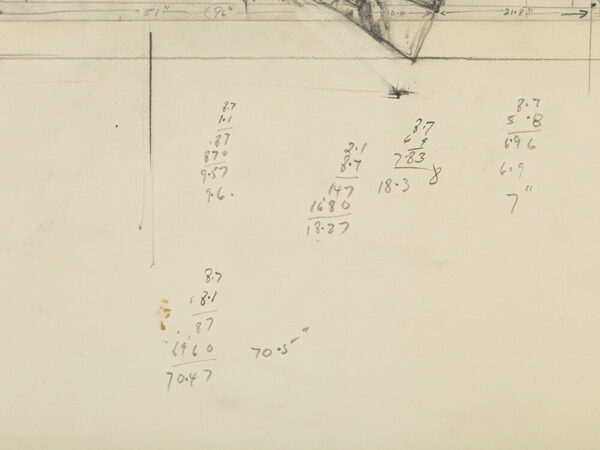 .51" (96" 21.8"
8.7
1.1
.87
870
9.57
9.6.
2.1
8.7
147
1680
18.27
8.7
.9
7.83
18.3
8
8.7
.8
6.96
6.9
7"
8.7
8.1
87
6960
70.47
70.5"